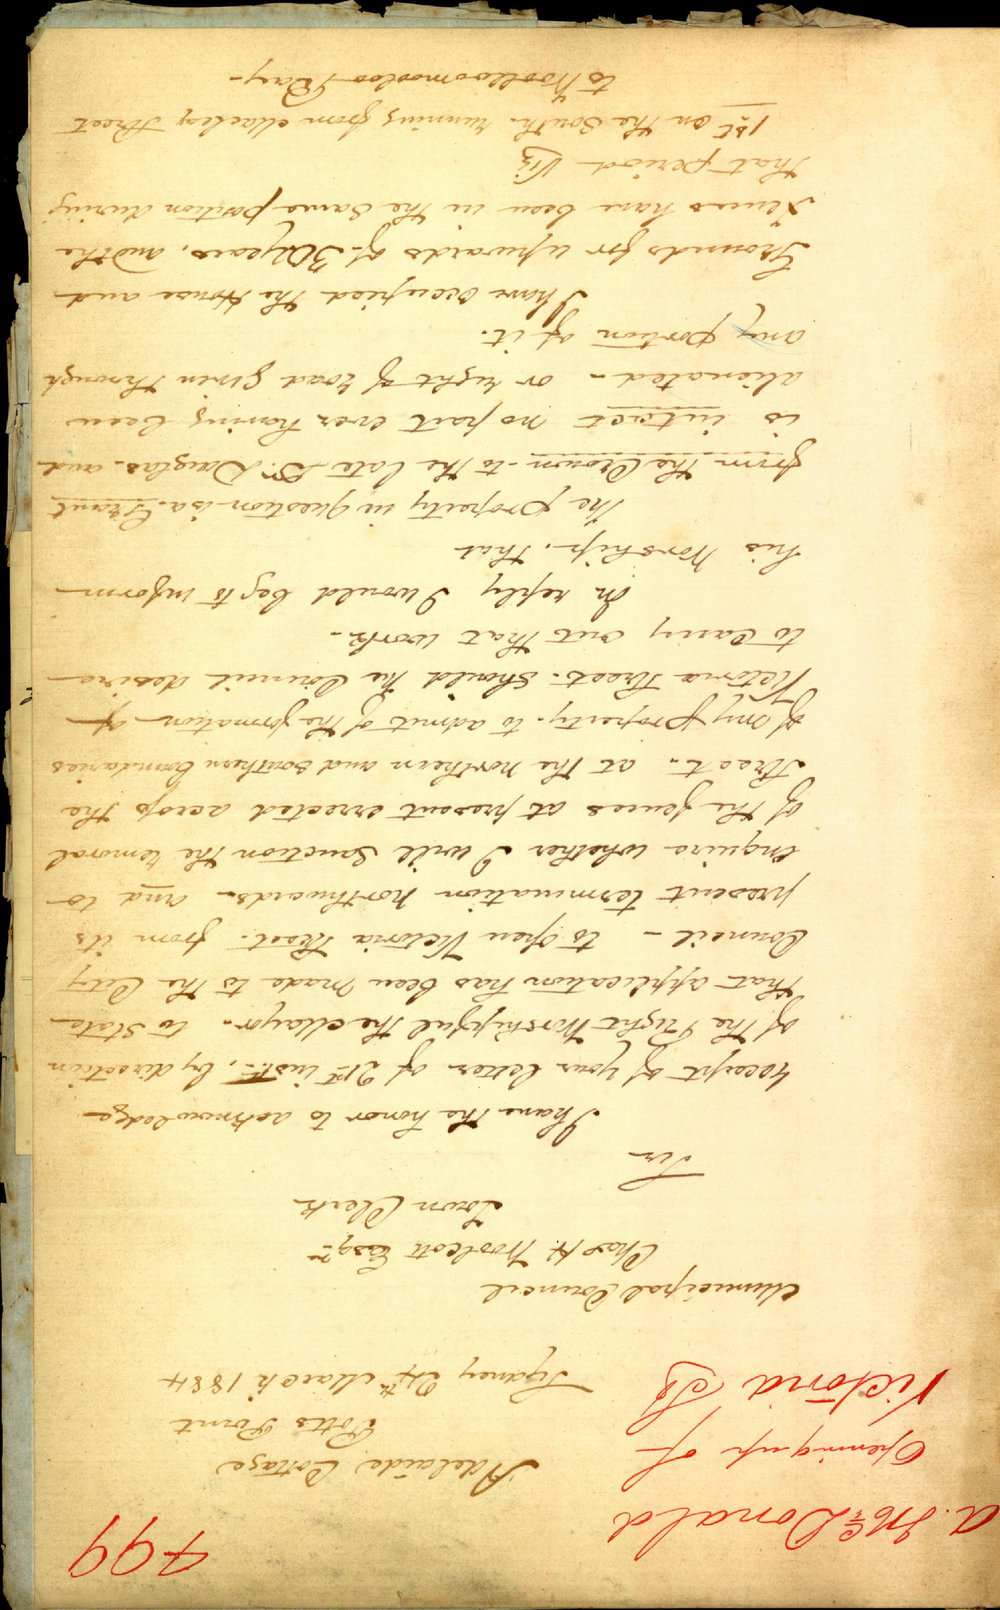 799
A. McDonald
Opening up of
Victoria St
Adelaide Cottage
Potts Point
Sydney 24th March 1884
Municipal Council
Chas H. Woolcott Esqre
Town Clerk
Sir
I have the honor to acknowledge
receipt of your letter of 21st inst., by direction
of the Right Worshipful the Mayor - to state
that application has been made to the City
Council - to open Victoria Street. from its
present termination northwards - and to
enquire whether I will sanction the removal
of the fences at present erected across the
Street - at the northern and southern boundaries
of my property. to admit of the formation of
Victoria Street - Should the Council desire
to carry out that work -
In reply I would beg to inform
his Worship. that
The property in question is a Grant
from the Crown - to the late Dr. Douglas. and
is intact no part ever having been
alienated - or right of road given through
any portion of it.
I have occupied the House and
Grounds for upwards of 30 years, and the
fences have been in the same position during
that period Viz
1st on the South. running from Macleay Street
to Woolloomooloo Bay -